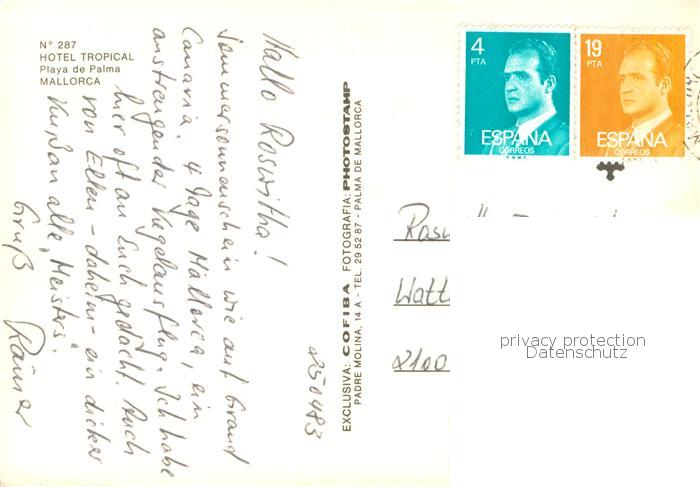 N° 287
HOTEL TROPICAL
Playa de Palma
MALLORCA
Hallo Roswitha!
Sommersonnenschein wie auf Grand
Canaria. 4 Tage Mallorca, ein
anstrengender Kegelausflug. Ich habe
hier oft an Euch gedacht. Auch
von Ellen - daheim - ein dicker
Kuß an alle, Meisters.
Gruß
Rainer
250483
EXCLUSIVA: COFIBA FOTOGRAFIA: PHOTOSTAMP
PADRE MOLINA, 14 A - TEL. 29 52 87 - PALMA DE MALLORCA
4
PTA
ESPAÑA
CORREOS
F.N.M.T.
19
PTA
ESPAÑA
CORREOS
F.N.M.T.
Watt
2100
privacy protection
Datenschutz